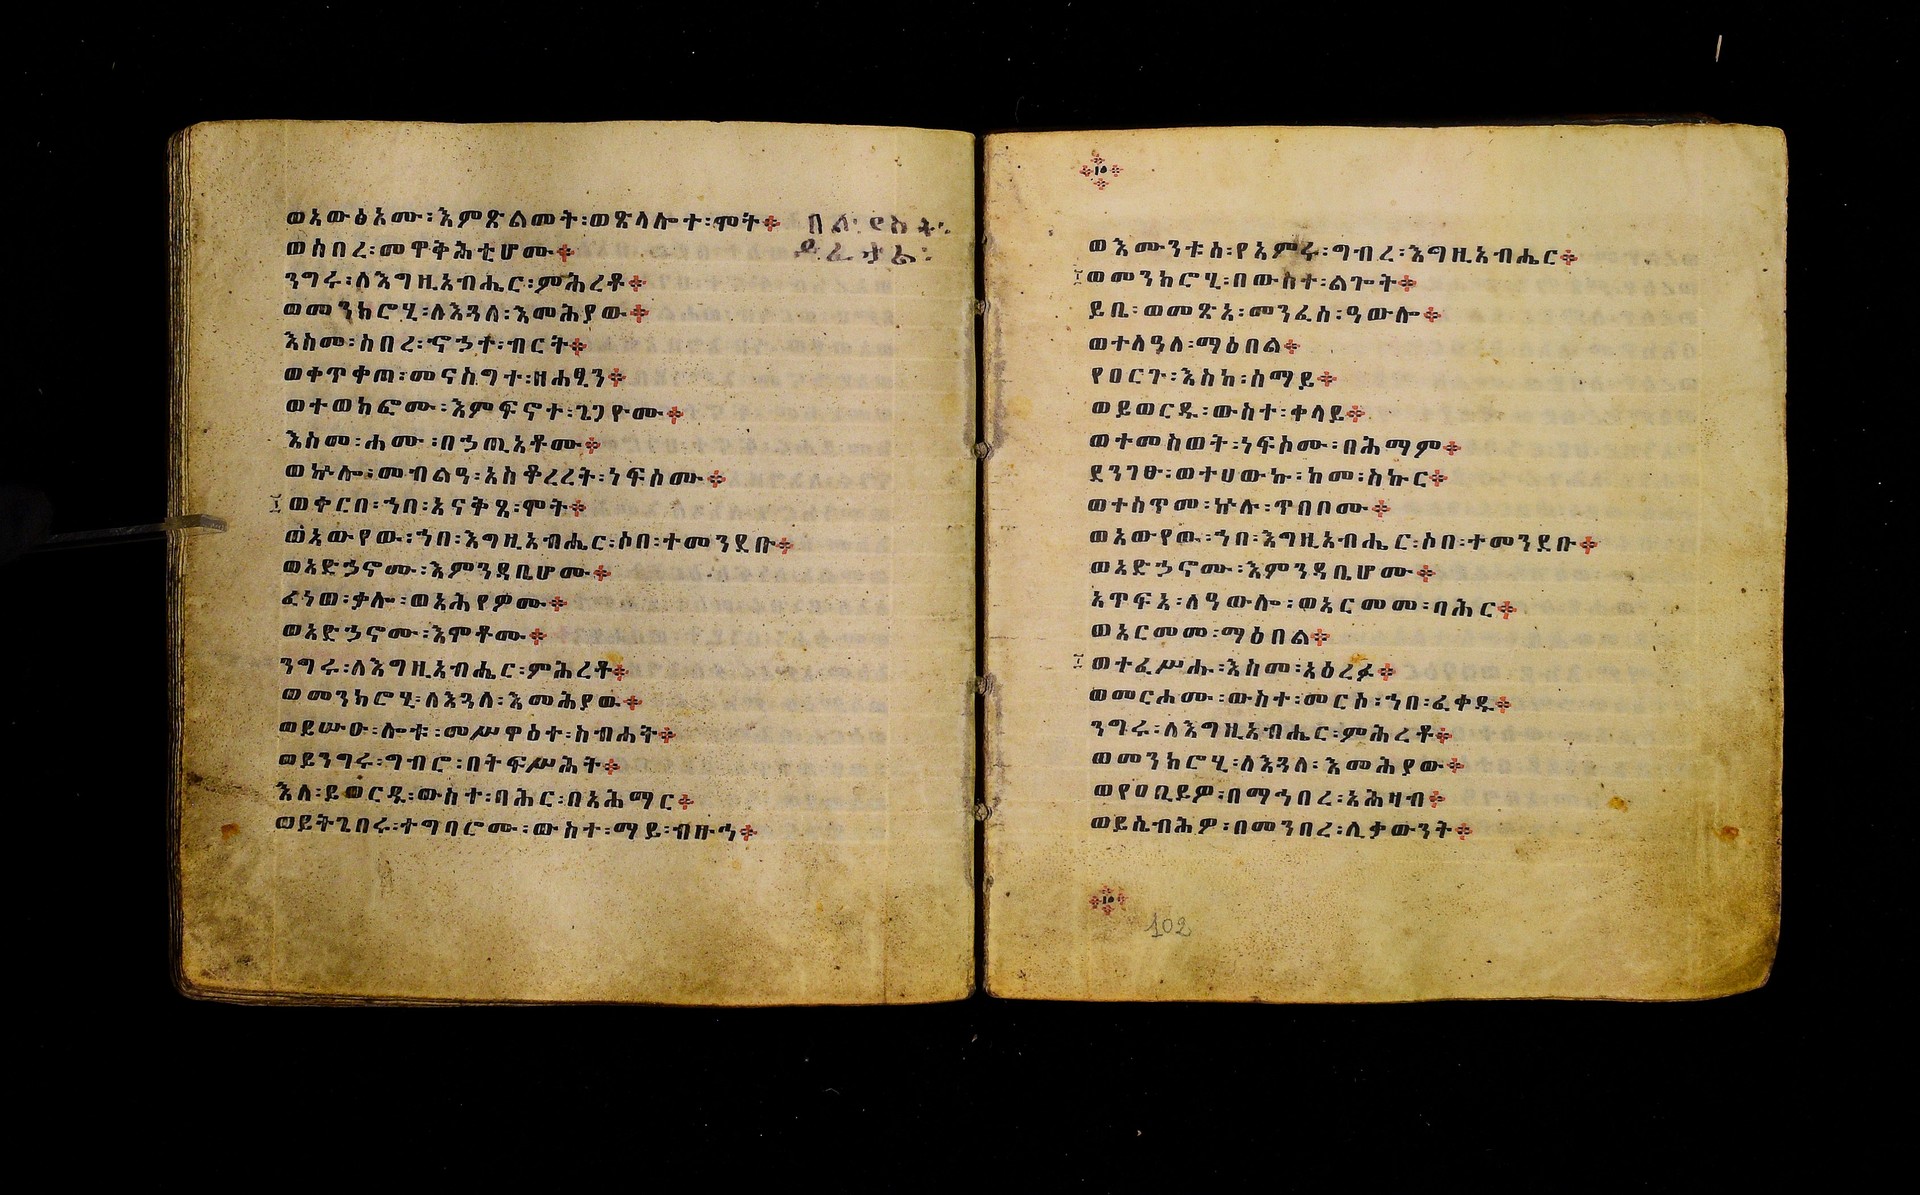 ወአውፅአሙ፡እምጽልመት፡ወጽላሎተ፡ሞት፨ በል፡
ወሰበረ፡መዋቅሕቲሆሙ፨
ንግሩ፡ለእግዚአብሔር፡ምሕረቶ፨
ወመንክሮሂ፡ለእጓለ፡እመሕያው፨
እስመ፡ሰበረ፡ኆኃተ፡ብርት፨
ወቀጥቀጠ፡መናስግተ፡ዘሐፂን፨
ወተወክፎሙ፡እምፍኖተ፡ጌጋዮሙ፨
እስመ፡ሐሙ፡በኃጢአቶሙ፨
ወኵሎ፡መብልዓ፡አስቆረረት፡ነፍስሙ፨
ወቀርበ፡ኀበ፡አናቅጸ፡ሞት፨
ወአውየው፡ኀበ፡እግዚአብሔር፡ሶበ፡ተመንደቡ፨
ወአድኃኖሙ፡እምንዳቤሆሙ፨
ፈነወ፡ቃሎ፡ወአሕየዎሙ፨
ወአድኃኖሙ፡እሞቶሙ፨
ንግሩ፡ለእግዚአብሔር፡ምሕረቶ፨
ወመንክሮሂ፡ለእጓለ፡እመሕያው፨
ወይሡዑ፡ሎቱ፡መሥዋዕተ፡ስብሐት፨
ወይንግሩ፡ግብሮ፡በትፍሥሕት፨
እለ፡ይወርዱ፡ውስተ፡ባሕር፡በአሕማር፨
ወይትጌበሩ፡ተግባሮሙ፡ውስተ፡ማይ፡ብዙኅ፨
፲
ወእሙንቱሰ፡የአምሩ፡ግብረ፡እግዚአብሔር፨
ወመንክሮሂ፡በውስተ፡ልጐት፨
ይቤ፡ወመጽአ፡መንፈሰ፡ዓውሎ፨
ወተለዓለ፡ማዕበል፨
የዐርጉ፡እስከ፡ሰማይ፨
ወይወርዱ፡ውስተ፡ቀላይ፨
ወተመስወት፡ነፍስሙ፡በሕማም፨
ደንገፁ፡ወተሀውኩ፡ከመ፡ስኩር፨
ወተሰጥመ፡ኵሉ፡ጥበቦሙ፨
ወአውየዉ፡ኀበ፡እግዚአብሔር፡ሶበ፡ተመንደቡ፨
ወአድኃኖሙ፡እምንዳቤሆሙ፨
አጥፍአ፡ለዓውሎ፡ወአርመመ፡ባሕር፨
ወአርመመ፡ማዕበል፨
ወተፈሥሑ፡እስመ፡አዕረፉ፨
ወመርሐሙ፡ውስተ፡መርሶ፡ኀበ፡ፈቀዱ፨
ንግሩ፡ለእግዚአብሔር፡ምሕረቶ፨
ወመንክሮሂ፡ለእጓለ፡እመሕያው፨
ወየዐቢይዎ፡በማኅበረ፡አሕዛብ፨
ወይሴብሕዎ፡በመንበረ፡ሊቃውንት፨
፲
102